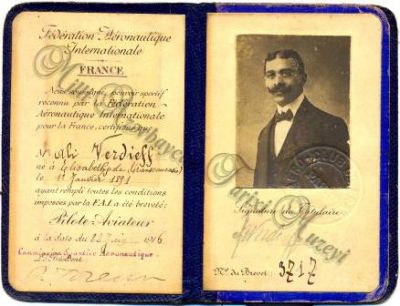 Fédération Aéronautique
Internationale
FRANCE
Nous soussigné, pouvoir sportif
reconnu par la Fédération
Aéronautique Internationale
pour la France, certifions que
Mr Ali Verdieff
né à Elisabethpol
le 11 Janvier 1891
ayant rempli toutes les conditions
imposées par la F.A.I. a été breveté:
Pilote-Aviateur
à la date du 22 1916
Commission Sportive Aéronautique
Le Président
Signature du Titulaire
No. du Brevet: 3717
Milli Azərbaycan Tarixi Muzeyi